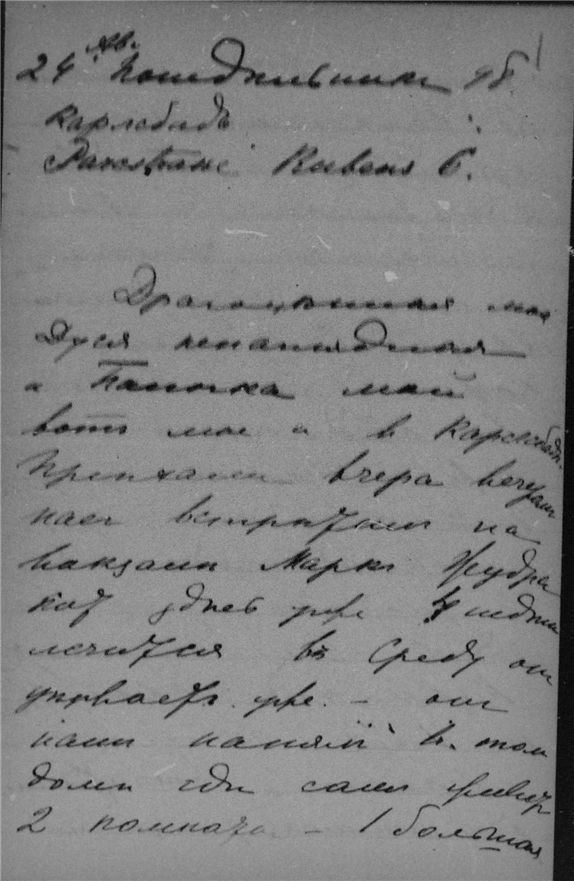 24 Ав. Понедельникъ 98
Карлсбадъ
6.
Драгоцѣнная моя
Дуся ненаглядная
и Папочка мой
вотъ мы и в Карлсбадѣ.
Пріѣхали вчера вечеромъ
насъ встрѣтилъ на
вокзалѣ Маркъ
кот здѣсь уже 4 недѣли
лечится въ Среду он
уѣзжаетъ уже. - он
намъ нанялъ в. том
домѣ гдѣ самъ живет
2 комнаты - 1 большая